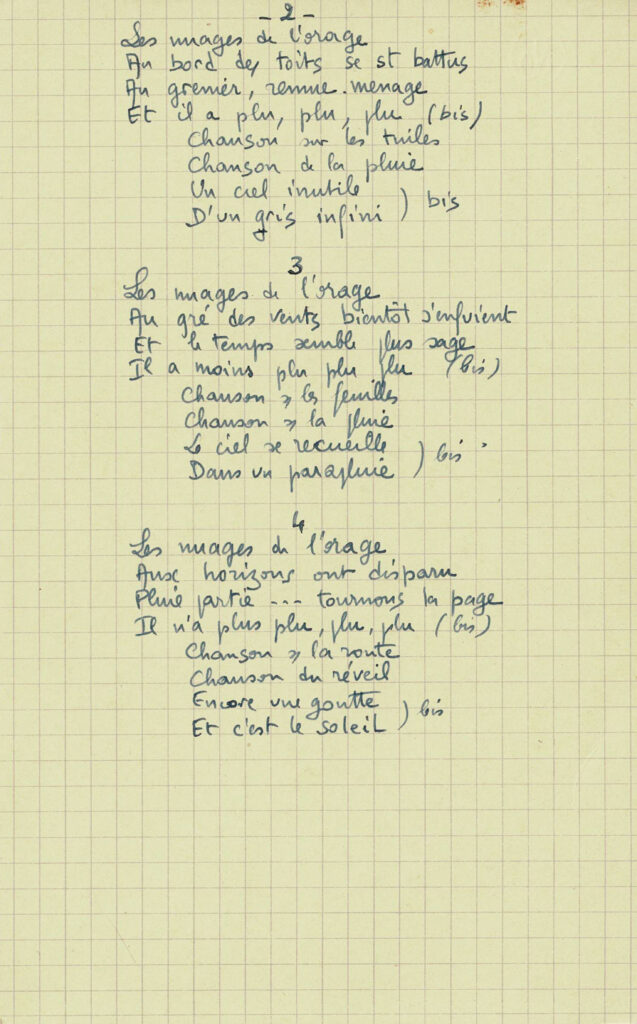 - 2 -
Les nuages de l'orage
Au bord des toits se st battus
Au grenier, remue-menage
Et il a plu, plu, plu (bis)
Chanson sur les tuiles
Chanson de la pluie
Un ciel inutile
D'un gris infini ) bis
3
Les nuages de l'orage
Au gré des vents bientôt s'enfuient
Et le temps semble plus sage
Il a moins plu plu plu (bis)
Chanson les feuilles
Chanson la pluie
Le ciel se recueille
Dans un parapluie ) bis
4
Les nuages de l'orage
Aux horizons ont disparu
Pluie partie --- tournons la page
Il n'a plus plu, plu, plu (bis)
Chanson la route
Chanson du réveil
Encore une goutte
Et c'est le soleil ) bis